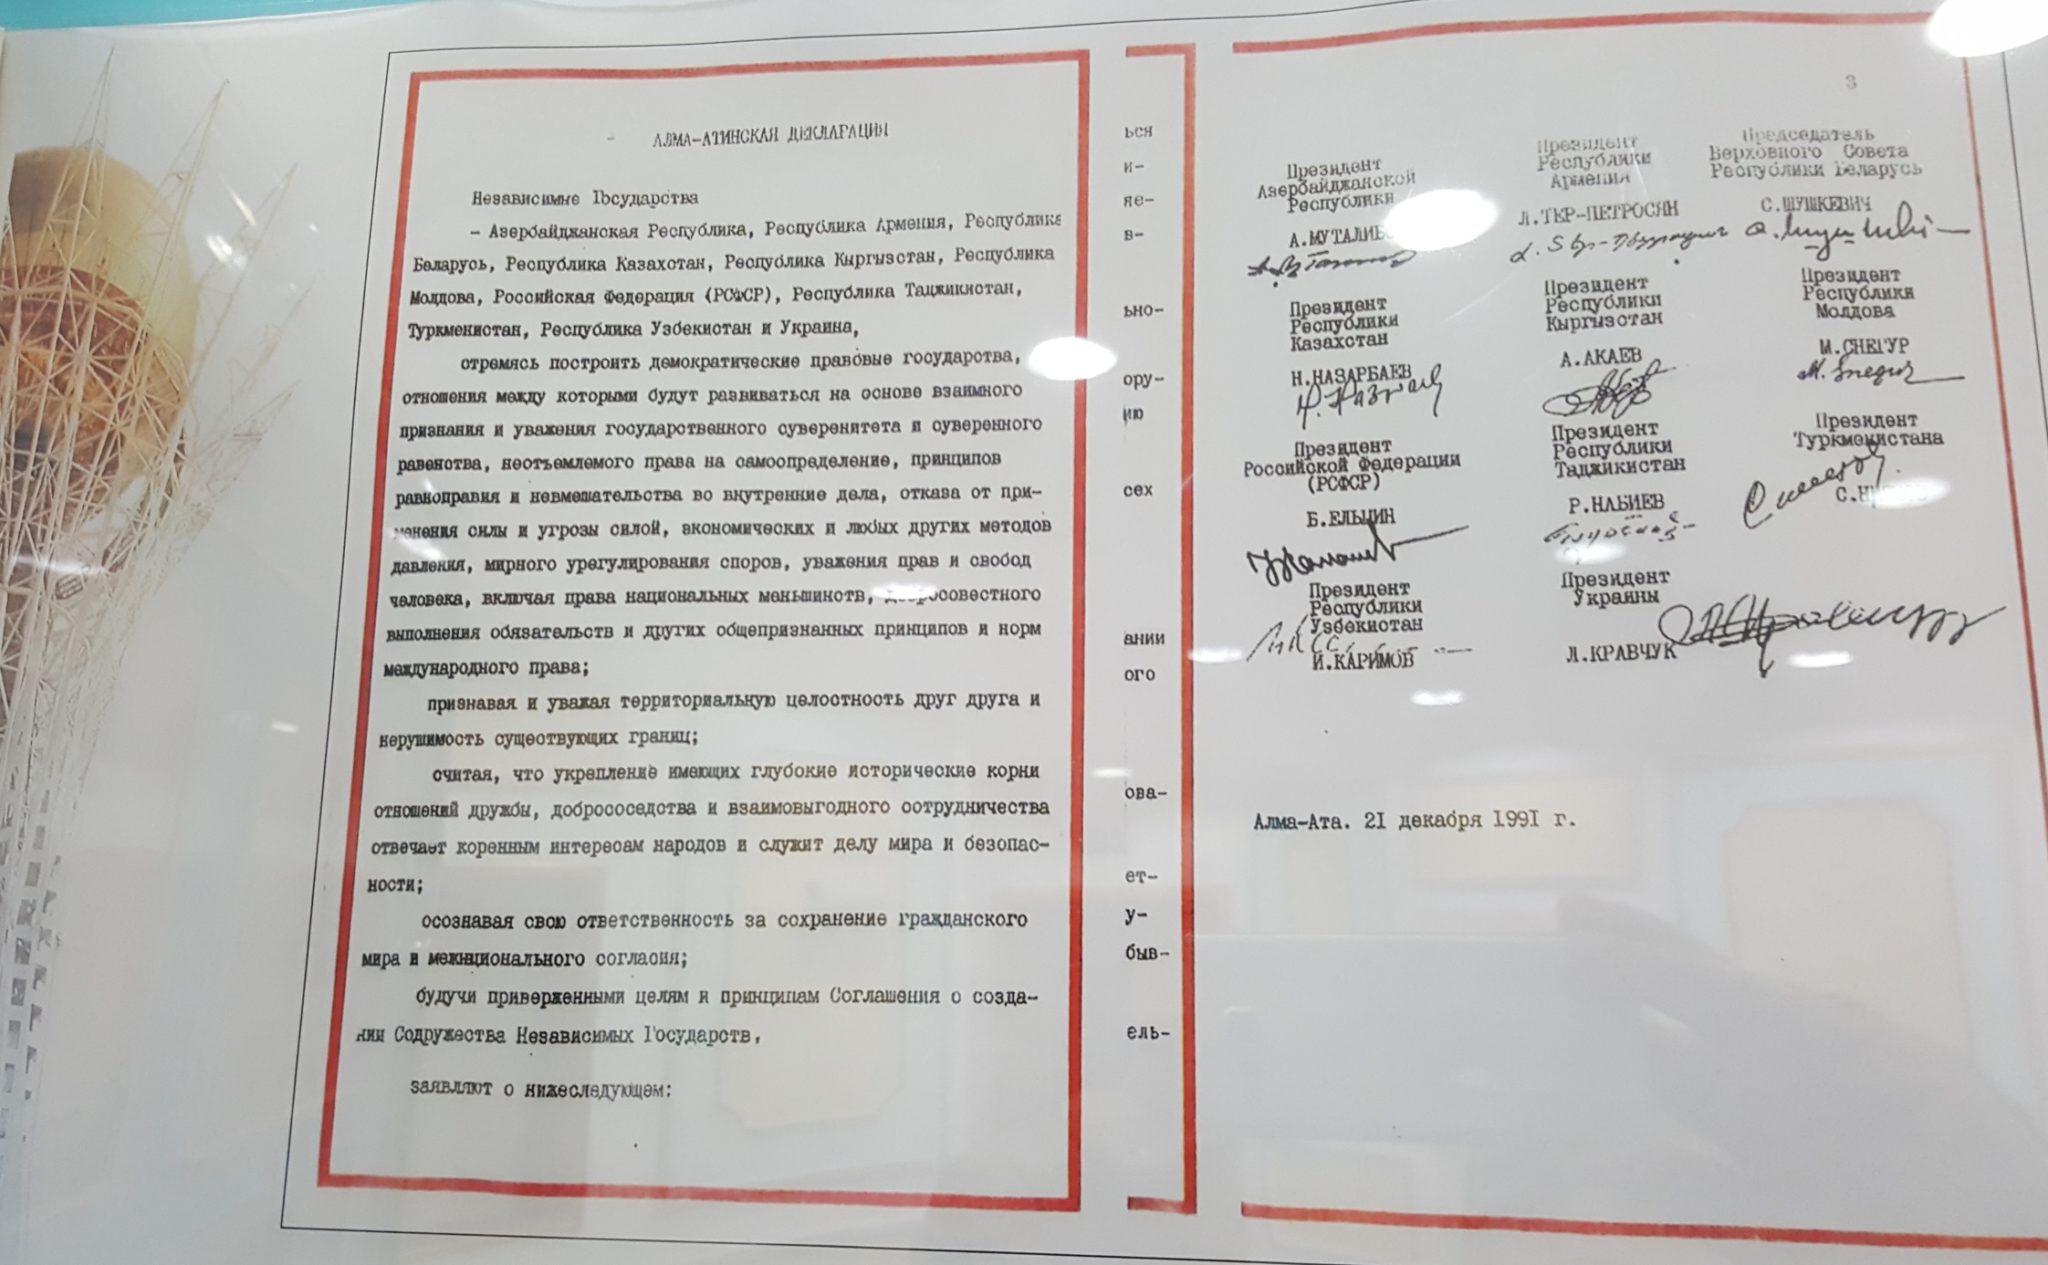 АЛМА-АТИНСКАЯ ДЕКЛАРАЦИЯ
Независимые Государства
- Азербайджанская Республика, Республика Армения, Республика
Беларусь, Республика Казахстан, Республика Кыргызстан, Республика
Молдова, Российская Федерация (РСФСР), Республика Таджикистан,
Туркменистан, Республика Узбекистан и Украина,
стремясь построить демократические правовые государства,
отношения между которыми будут развиваться на основе взаимного
признания и уважения государственного суверенитета и суверенного
равенства, неотъемлемого права на самоопределение, принципов
равноправия и невмешательства во внутренние дела, отказа от при-
менения силы и угрозы силой, экономических и любых других методов
давления, мирного урегулирования споров, уважения прав и свобод
человека, включая права национальных меньшинств, добросовестного
выполнения обязательств и других общепризнанных принципов и норм
международного права;
признавая и уважая территориальную целостность друг друга и
нерушимость существующих границ;
считая, что укрепление имеющих глубокие исторические корни
отношений дружбы, добрососедства и взаимовыгодного сотрудничества
отвечает коренным интересам народов и служит делу мира и безопас-
ности;
осознавая свою ответственность за сохранение гражданского
мира и межнционального согласия;
будучи приверженными целям и принципам Соглашения о созда-
нии Содружества Независимых Государств,
заявляют о нижеследующем:
ься
и-
яе-
в-
ьно-
ору-
ию
сех
ании
ого
ова-
ет-
у-
быв-
ель-
3
Президент
Азербайджанской
Республики
А.МУТАЛИБ
Президент
Республики
Армения
Л.ТЕР-ПЕТРОСЯН
Председатель
Верховного Совета
Республики Беларусь
С.ШУШКЕВИЧ
Президент
Республики
Казахстан
Н.НАЗАРБАЕВ
Президент
Республики
Кыргызстан
А.АКАЕВ
Президент
Республики
Молдова
М.СНЕГУР
Президент
Российской Федерации
(РСФСР)
Б.ЕЛЬЦИН
Президент
Республики
Таджикистан
Р.НАБИЕВ
Президент
Туркменистана
Президент
Республики
Узбекистан
И.КАРИМОВ
Президент
Украины
Л.КРАВЧУК
Алма-Ата. 21 декабря 1991 г.